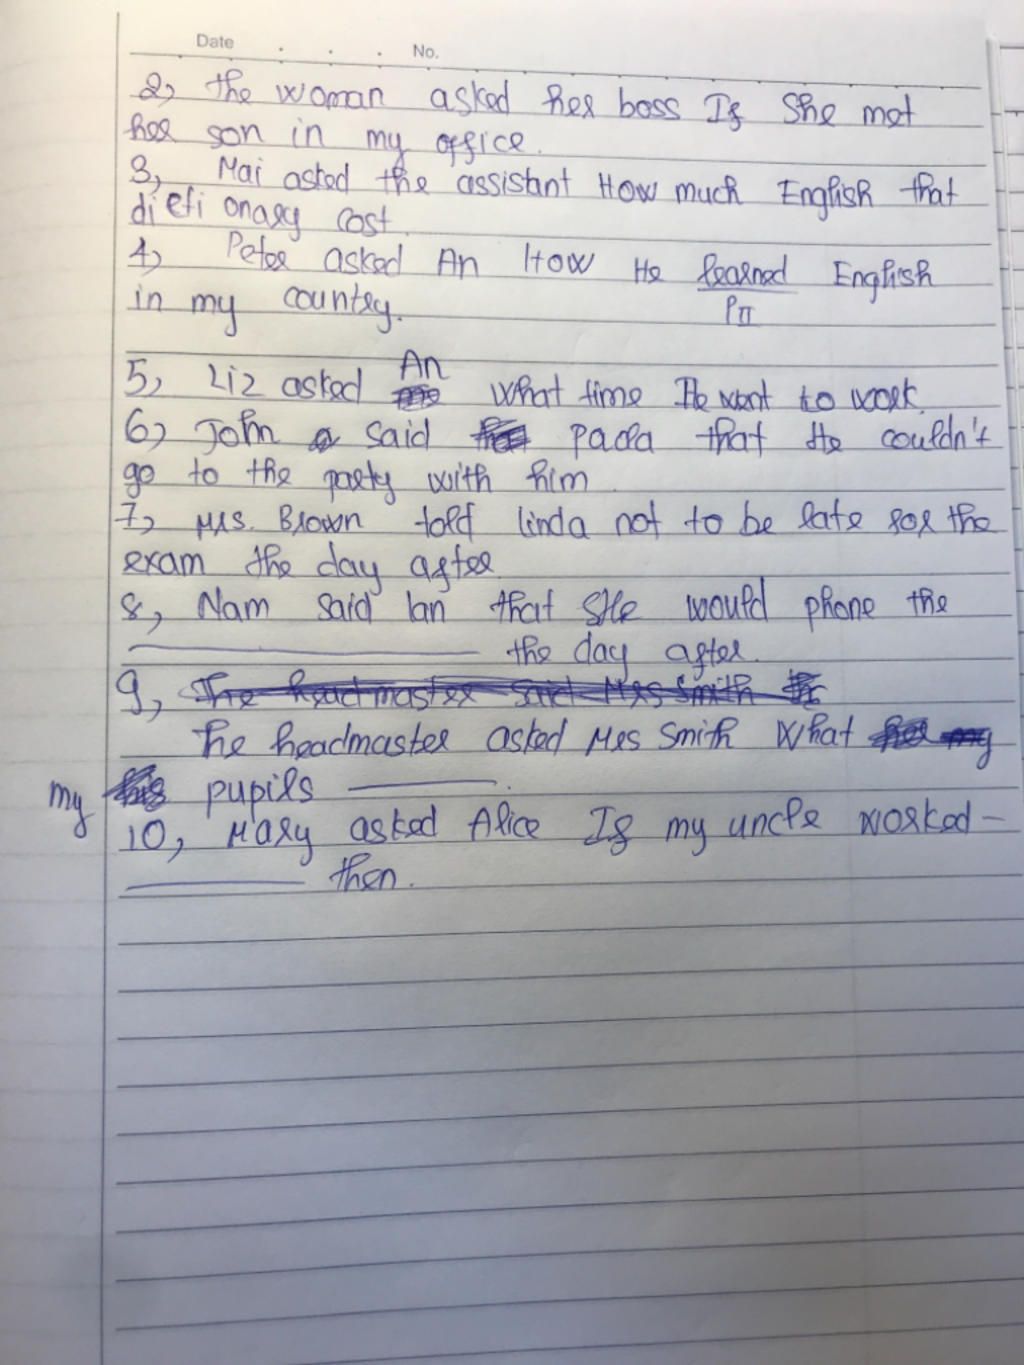 Date . . . No.
2, the woman asked her boss If She met
her son in my office.
3, Mai asked the assistant How much English that
dictionary cost.
4, Peter asked An How He learned English
PII
in my country.
5, Liz asked An what time He went to work.
6, John said paola that He couldn't
go to the party with him
7, Mrs. Brown told linda not to be late for the
exam the day after
8, Nam said lan that SHe would phone the
the day after.
9, The headmaster said Mrs Smith
The headmaster asked Mrs Smith What
my pupils
10, Mary asked Alice If my uncle worked
then.